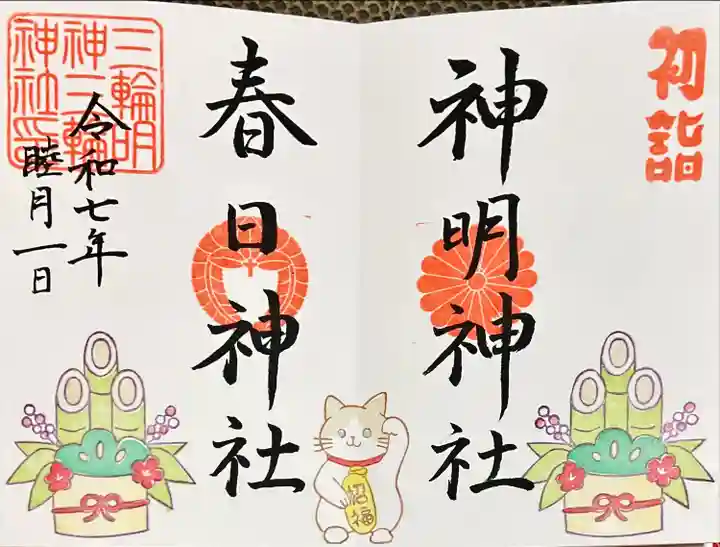 初詣
神明神社
春日神社
三輪明
神三輪
神社印
令和七年
睦月一日
招福